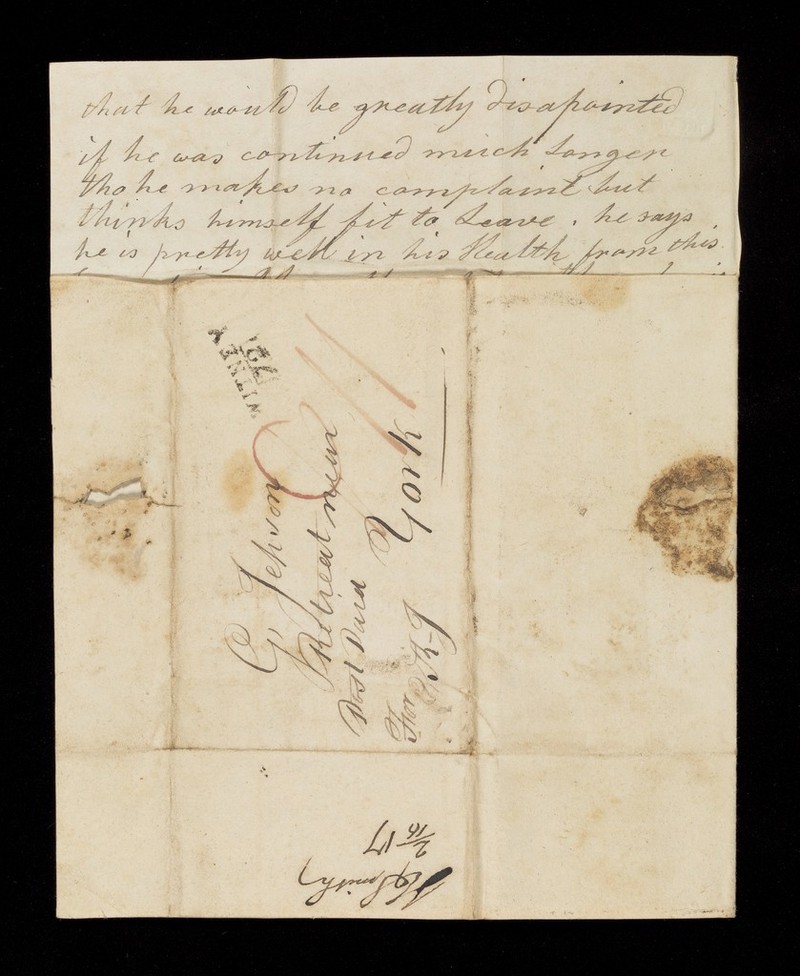 that he would be greatly disapointed
if he was continued much Longer
tho he makes no complaint but
thinks himself fit to Leave . he says
he is pretty well in his Health from this
WITNEY
G Jepson
Retreat near
York
Post Paid
For
T K-g
Smith
2/17